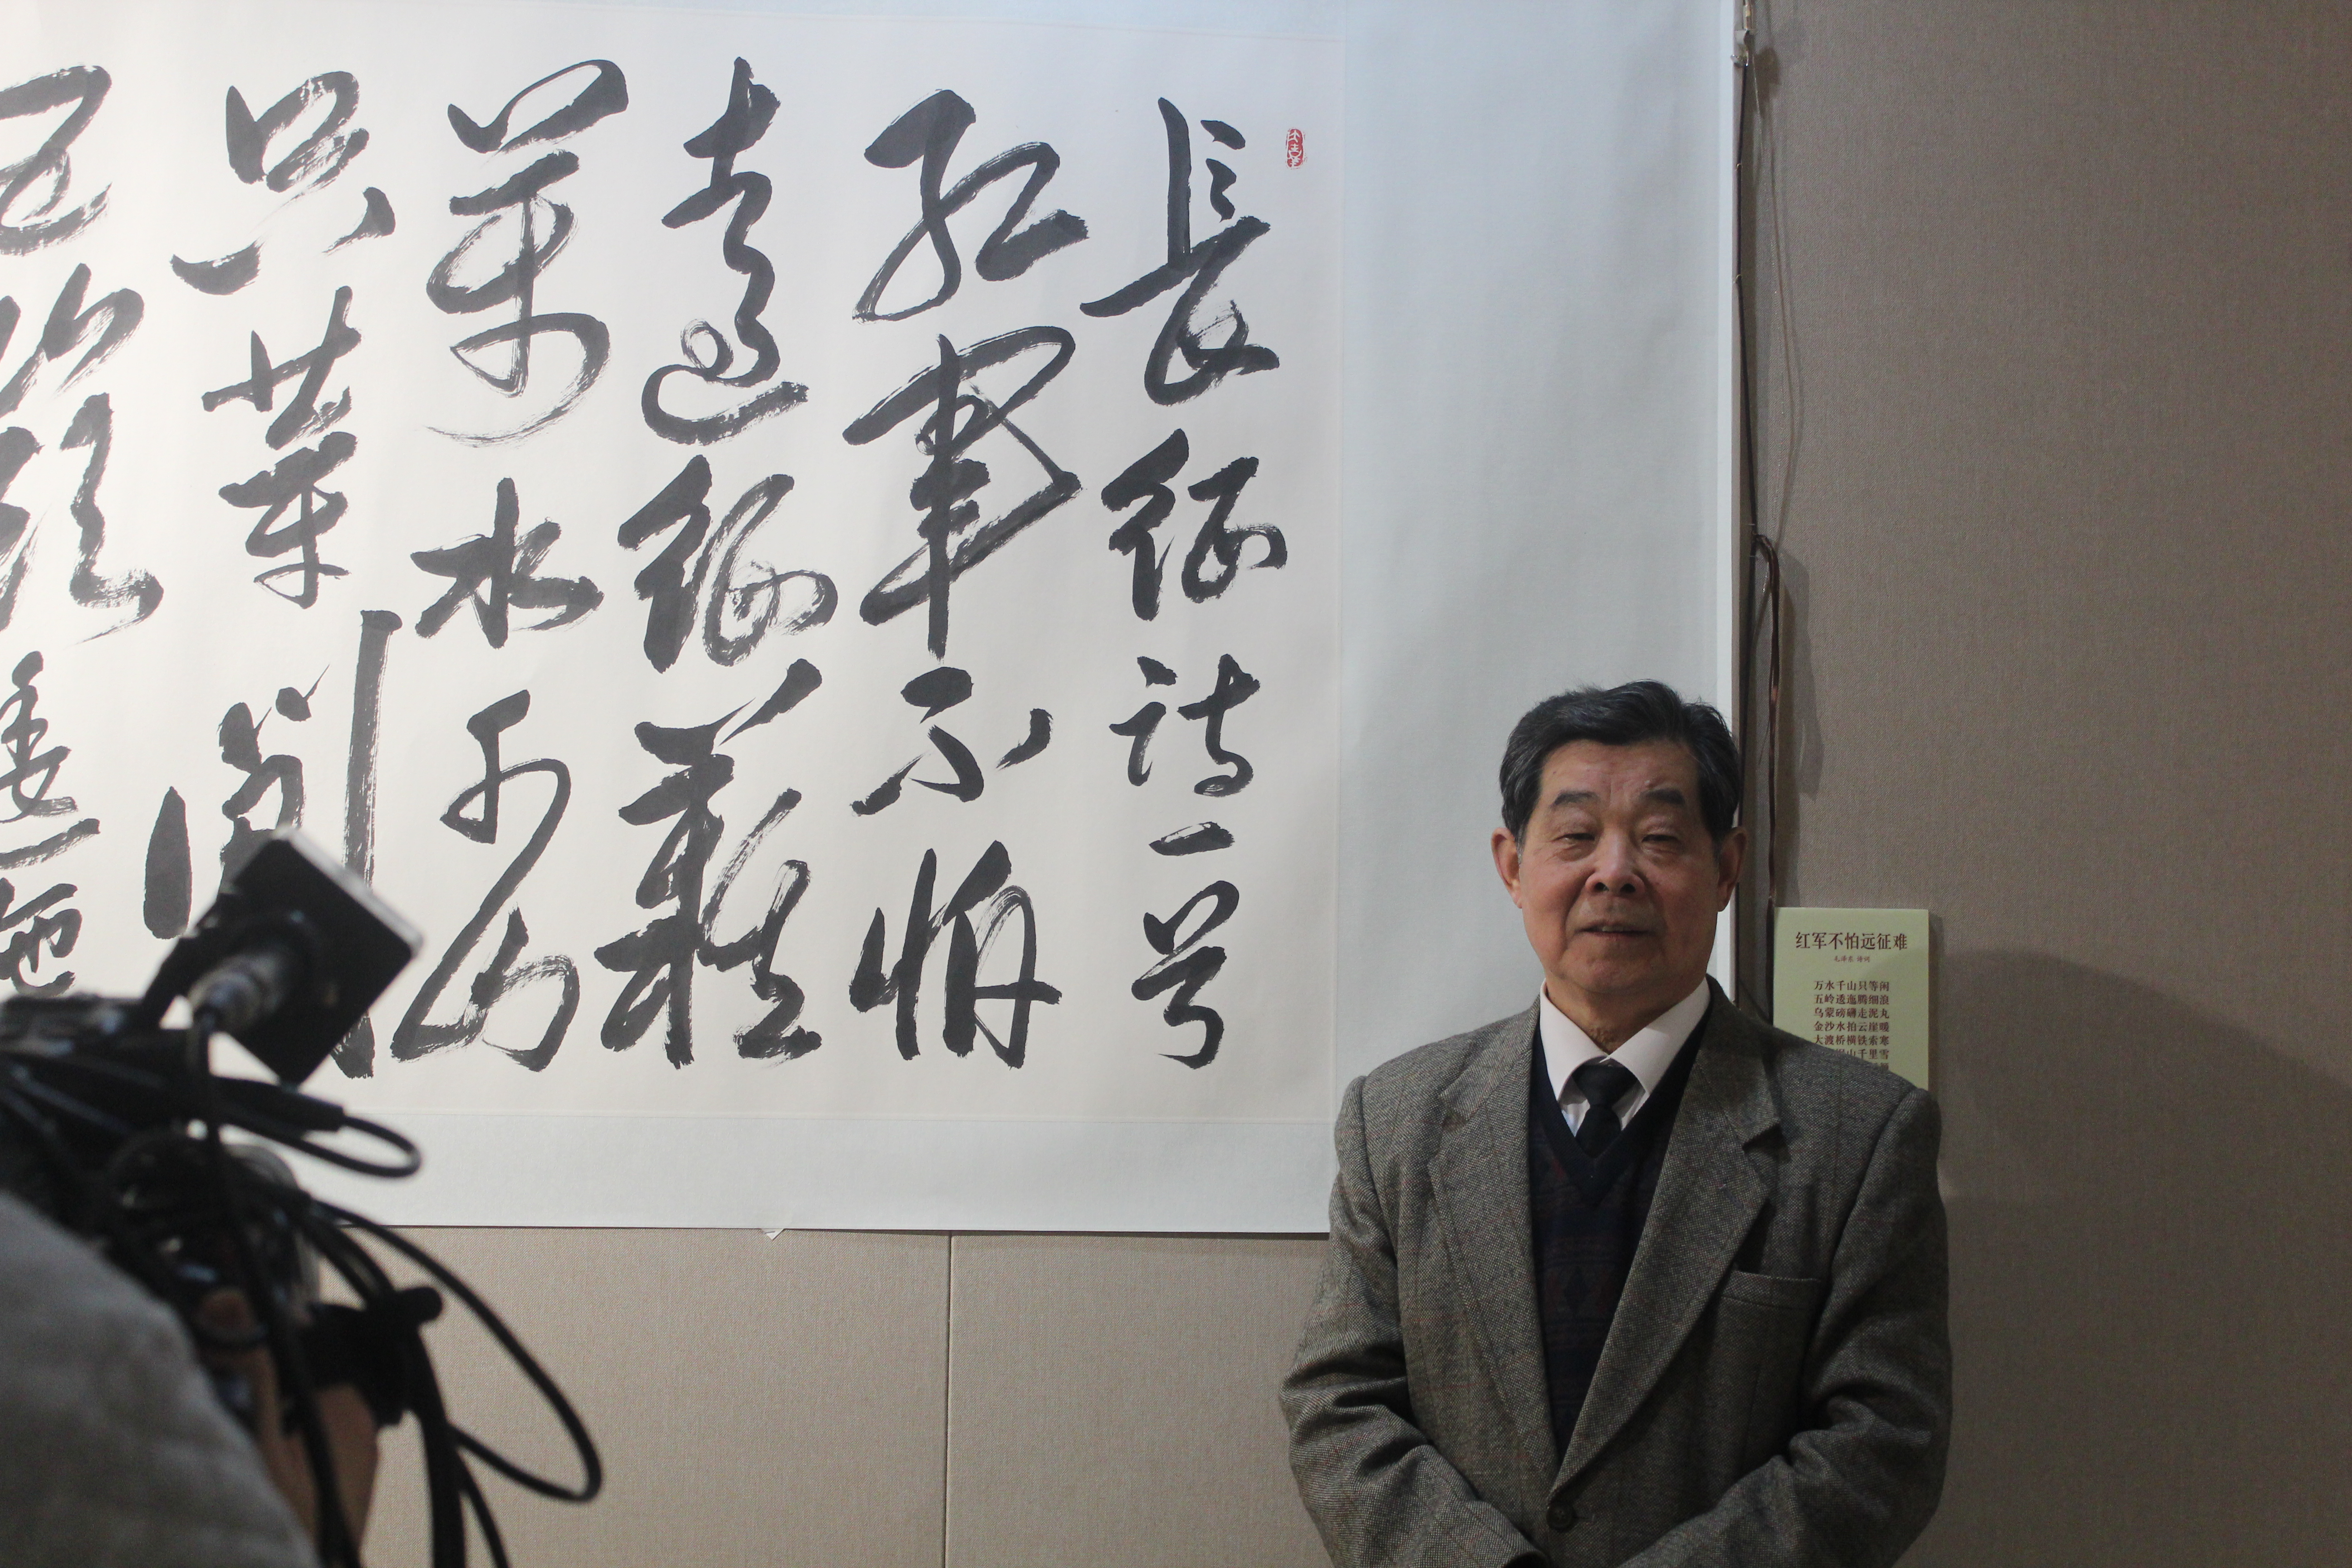 長征詩一首
紅軍不怕
遠征難
萬水千山
只等閑
五嶺逶迤
红军不怕远征难
毛泽东 诗词
万水千山只等闲
五岭逶迤腾细浪
乌蒙磅礴走泥丸
金沙水拍云崖暖
大渡桥横铁索寒
山千里雪